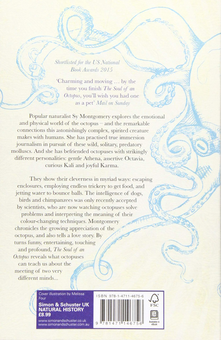 Shortlisted for the US National
Book Awards 2015
'Charming and moving . . . by the
time you finish The Soul of an
Octopus, you'll wish you'd had one
as a pet' Mail on Sunday
Popular naturalist Sy Montgomery explores the emotional
and physical world of the octopus – and the remarkable
connections this astonishingly complex, spirited creature
makes with humans. She has practised true immersion
journalism in pursuit of these wild, solitary, predatory
molluscs. And she has befriended octopuses with strikingly
different personalities: gentle Athena, assertive Octavia,
curious Kali and joyful Karma.
They show their cleverness in myriad ways: escaping
enclosures, employing endless trickery to get food, and
jetting water to bounce balls. The intelligence of dogs,
birds and chimpanzees was only recently accepted
by scientists, who are now watching octopuses solve
problems and interpreting the meaning of their
colour-changing techniques. Montgomery
chronicles the growing appreciation of the
octopus, and also tells a love story. By
turns funny, entertaining, touching
and profound, The Soul of an
Octopus reveals what octopuses
can teach us about the
meeting of two very
different minds . . .
Cover illustration by Melissa
Simon & Schuster UK
NATURAL HISTORY
£8.99
FSC